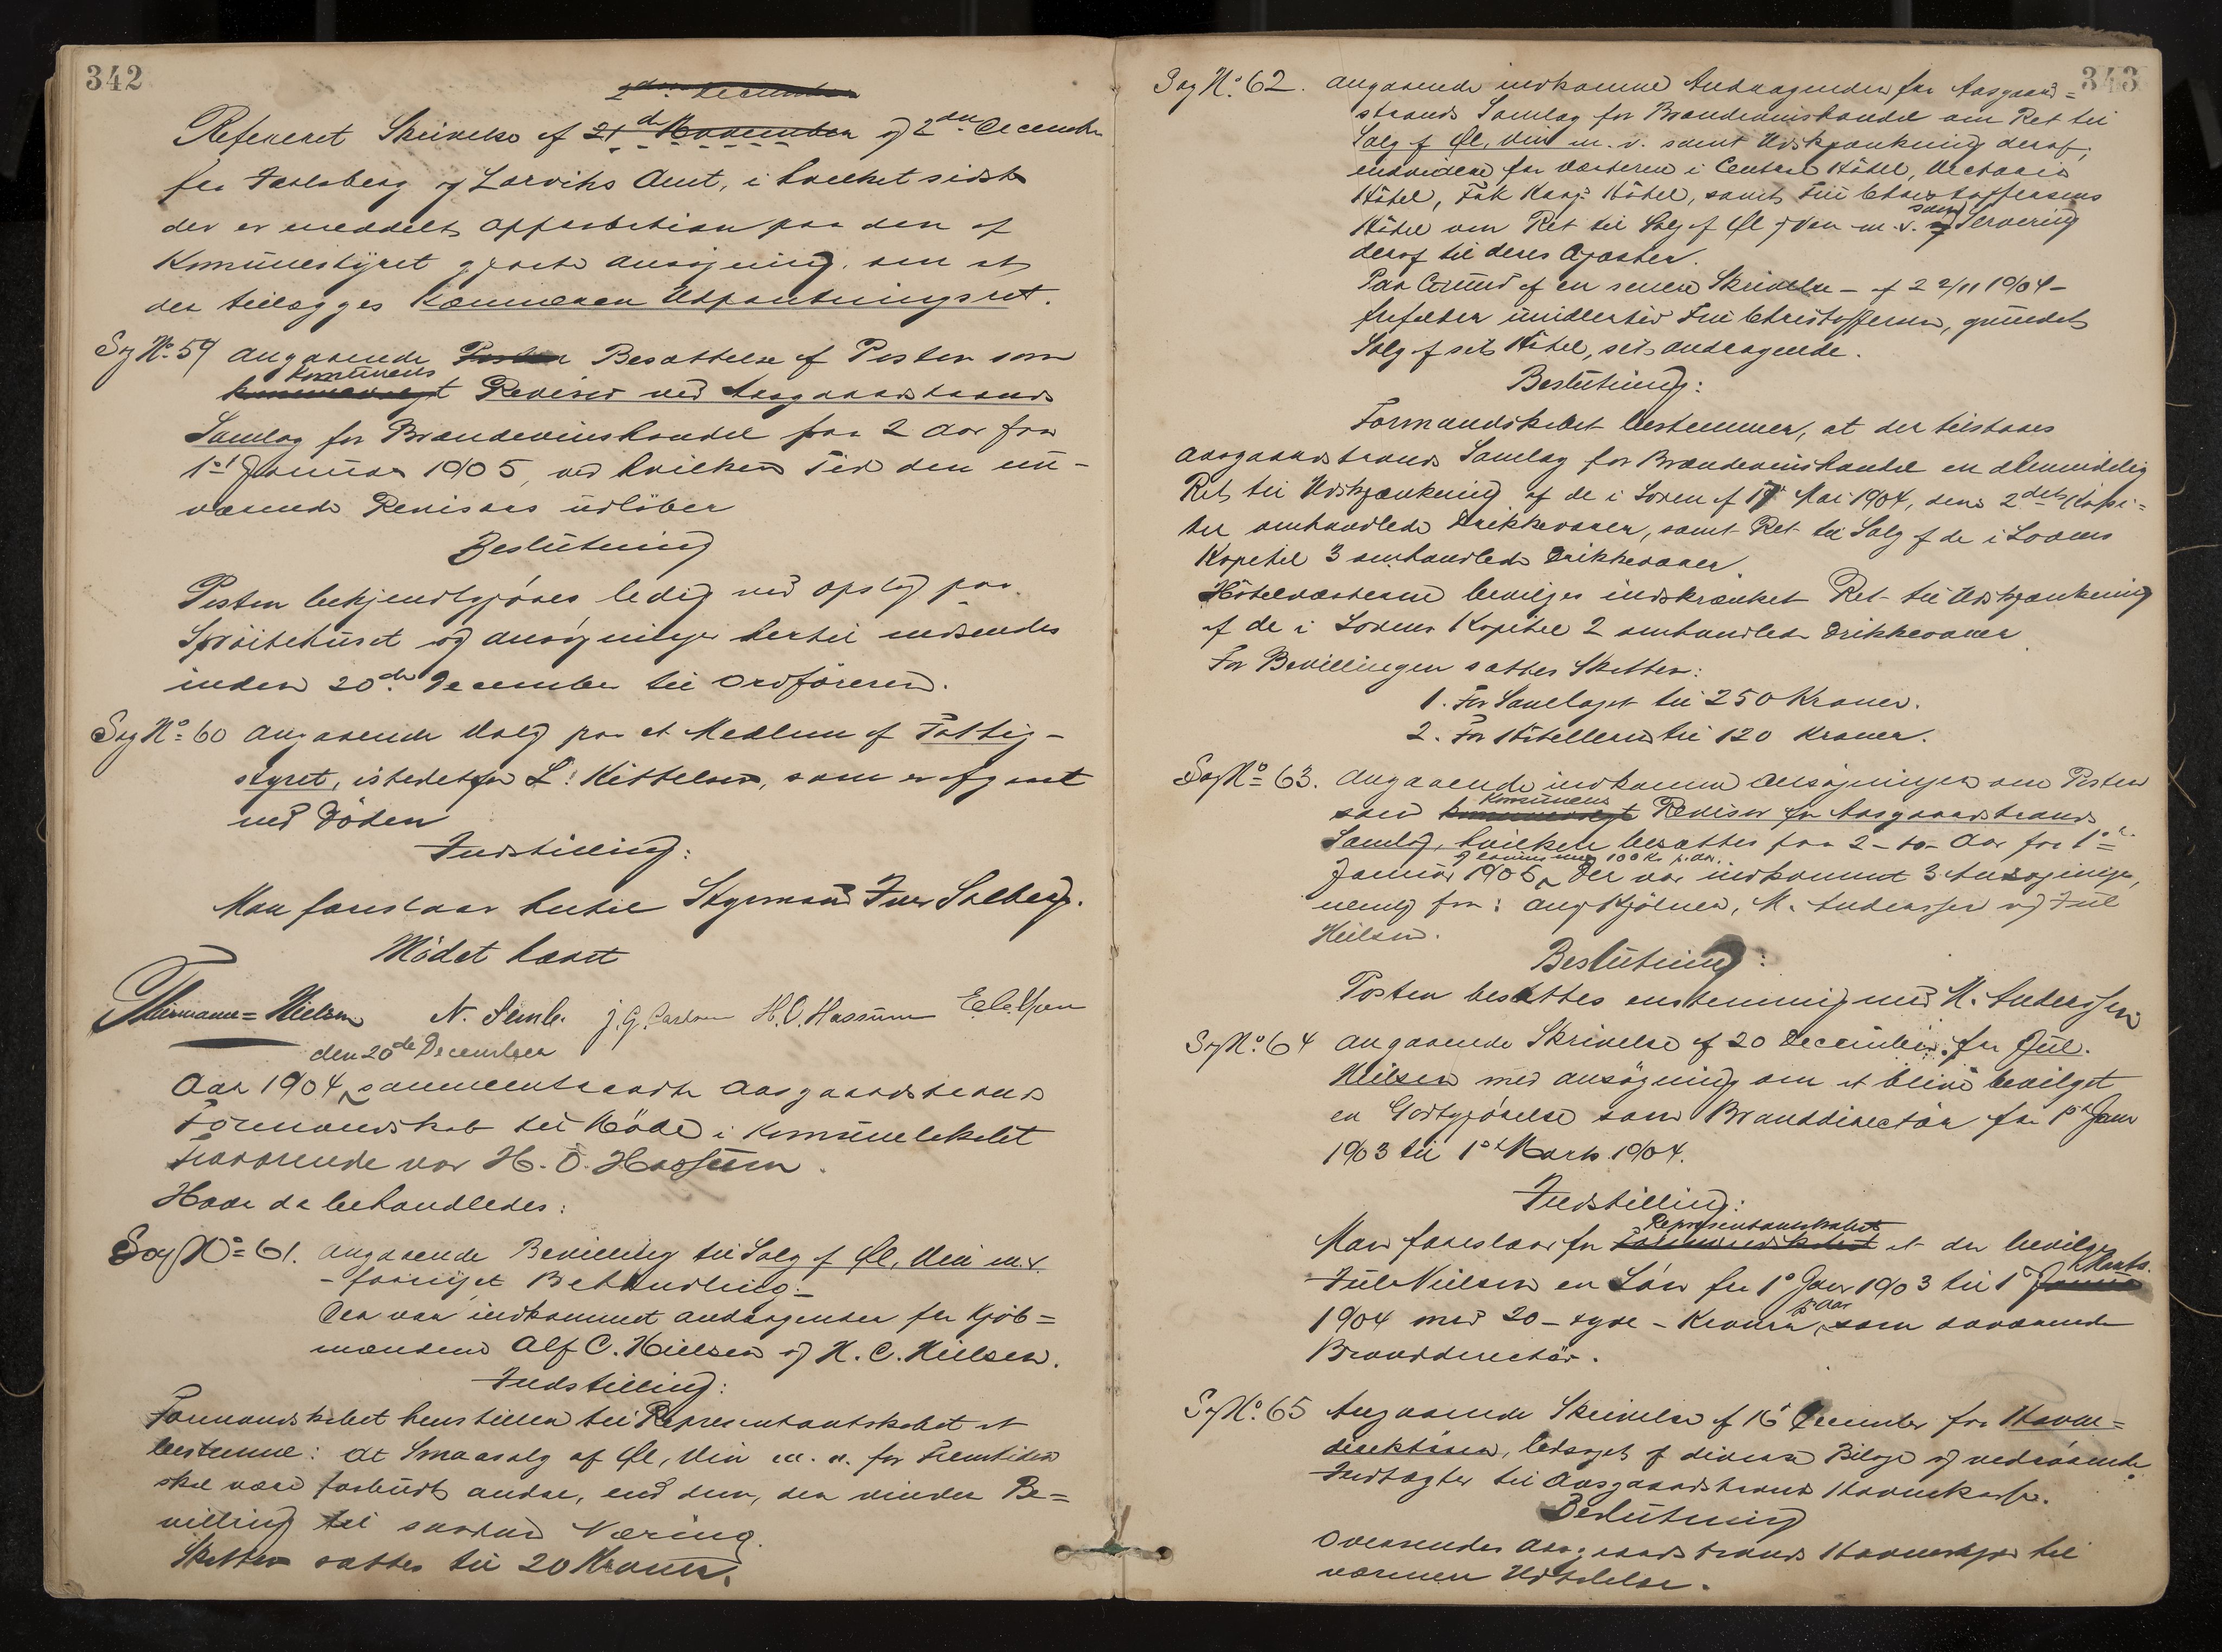 342
2den December
Refereret Skrivelse af 21de November og 2den December
fra Jarlsberg og Larviks Amt, i hvilket sidste
der er meddelt Approbation paa den af
Komunestyret gjorte Ansøgning om at
der tillægges Kæmneren Udpantningsret.
Sag No. 59 Angaaende Posten Besættelse af Posten som
Komunens
Revisor ved Aasgaardstrands
Samlag for Brændevinshandel paa 2 Aar fra
1ste Januar 1905, ved hvilken Tid den nu-
værende Revisors udløber
Beslutning
Posten bekjendtgjøres ledig ved Opslag paa
Sprøitehuset og Ansøgninger hertil indsendes
inden 20de December til Ordføreren.
Sag No 60 Angaaende Valg paa et Medlem af Fattig-
styret, istedetfor L. Kittelsen, som er afgaaet
ved Døden
Indstilling:
Man foreslaar hertil Styrmand Iver Solberg.
Mødet hævet
Thermann-Nielsen N. Semb. J. G. Carlsen H. O. Hassum
den 20de December
Aar 1904, sammentraadte Aasgaardstrands
Formandskab til Møde i Komunelokalet
Fraværende var H. O. Hassum.
Hvor da behandledes:
Sag No 61. Angaaende Bevilling til Salg af Øl, Vin m.v.
- fornyet Behandling -
Der var indkommet Andragender fra Kjøb=
mændene Alf C. Nielsen og N. C. Nielsen.
Indstilling:
Formandskabet henstiller til Repræsentantskabet at
bestemme: At Smaasalg af Øl, Vin m.v. for Fremtiden
skal være forbudt andre, end dem, der vinder Be=
villing til saadan Næring.
Skatten sættes til 20 Kroner.
343
Sag No. 62. Angaaende indkomne Andragender fra Aasgaard=
strands Samlag for Brændevinshandel om Ret til
Salg af Øl, Vin m.v. samt Udskjænkning deraf;
endvidere fra Værterne i Central Hôtel, Victoria
Hôtel, Frk Kaaj Hôtel, samt Fru Christoffersens
samt
Hôtel om Ret til Salg af Øl og Vin m.v. og Servering
deraf til deres Gjæster.
Paa Grund af en senere Skrivelse - af 22/11 1904 -
frafalder imidlertid Fru Christoffersen, grundet
Salg af sit Hôtel, sit Andragende.
Beslutning:
Formandskabet bestemmer, at der tilstaaes
Aasgaardstrands Samlag for Brændevinshandel en almindelig
Ret til Udskjænkning af de i Loven af 17 Mai 1904, dens 2det Kapi=
tel omhandlede Drikkevarer, samt Ret til Salg af de i Lovens
Kapitel 3 omhandlede Drikkevarer.
Hôtelværterne bevilges indskrænket Ret til Udskjænkning
af de i Lovens Kapitel 2 omhandlede Drikkevarer
For Bevillingen sættes Skatten:
1. For Samlaget til 250 Kroner.
2. For Hôtellerne til 120 Kroner.
Sag No 63. Angaaende indkomne Ansøgninger om Posten
Komunens
som Revisor for Aasgaardstrands
Samlag, hvilken besættes paa 2 - to - Aar fra 1ste
og lønnes med 100 Kr. p. Aar.
Januar 1905. Der var indkommet 3 Ansøgninger,
nemlig fra: Aug. Kjølner, M. Anderssen og Jul
Nielsen.
Beslutning:
Posten besættes enstemmig med M. Anderssen.
Sag No. 64 Angaaende Skrivelse af 20 December fra Jul.
Nielsen med Ansøgning om at blive bevilget
en Godtgjørelse som Branddirectør fra 1ste Janr
1903 til 1ste Marts 1904.
Indstilling:
Representantskabet
Man foreslaar for Formandskabet at der bevilges
Marts.
Jul. Nielsen en Løn fra 1ste Janr 1903 til 1ste Januar
p. Aar
1904 med 20 - tyve - Kroner, som daværende
Branddirectør.
Sag No. 65 Angaaende Skrivelse af 16de December fra Havne=
direktøren, ledsaget af diverse Bilage og vedrørende
Indtægter til Aasgaardstrands Havnekasse.
Beslutning
Oversendes Aasgaardstrands Havnestyre til
nærmere Udtalelse.